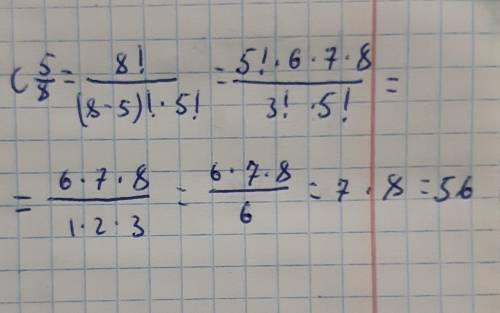 C 5/8 = 8! / (8-5)! · 5! = 5! · 6 · 7 · 8 / 3! · 5! =
= 6 · 7 · 8 / 1 · 2 · 3 = 6 · 7 · 8 / 6 = 7 · 8 = 56